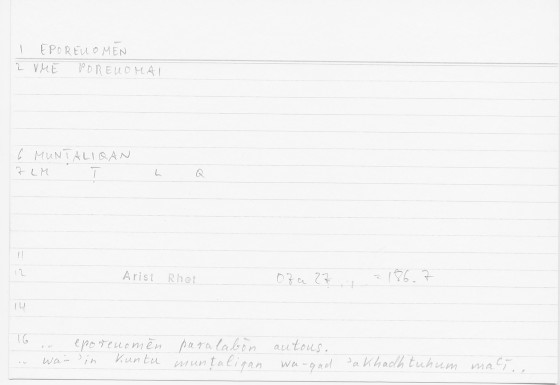 1 EPOREUOMĒN
2 VME POREUOMAI
6 MUNṬALIQAN
7 LM Ṭ L Q
11
12 Arist Rhet 07a 27 , , = 156.7
14
16 .. eporeuomēn paralabōn autous.
.. wa-ʾin kuntu munṭaliqan wa-qad ʾakhadhtuhum maʿī..